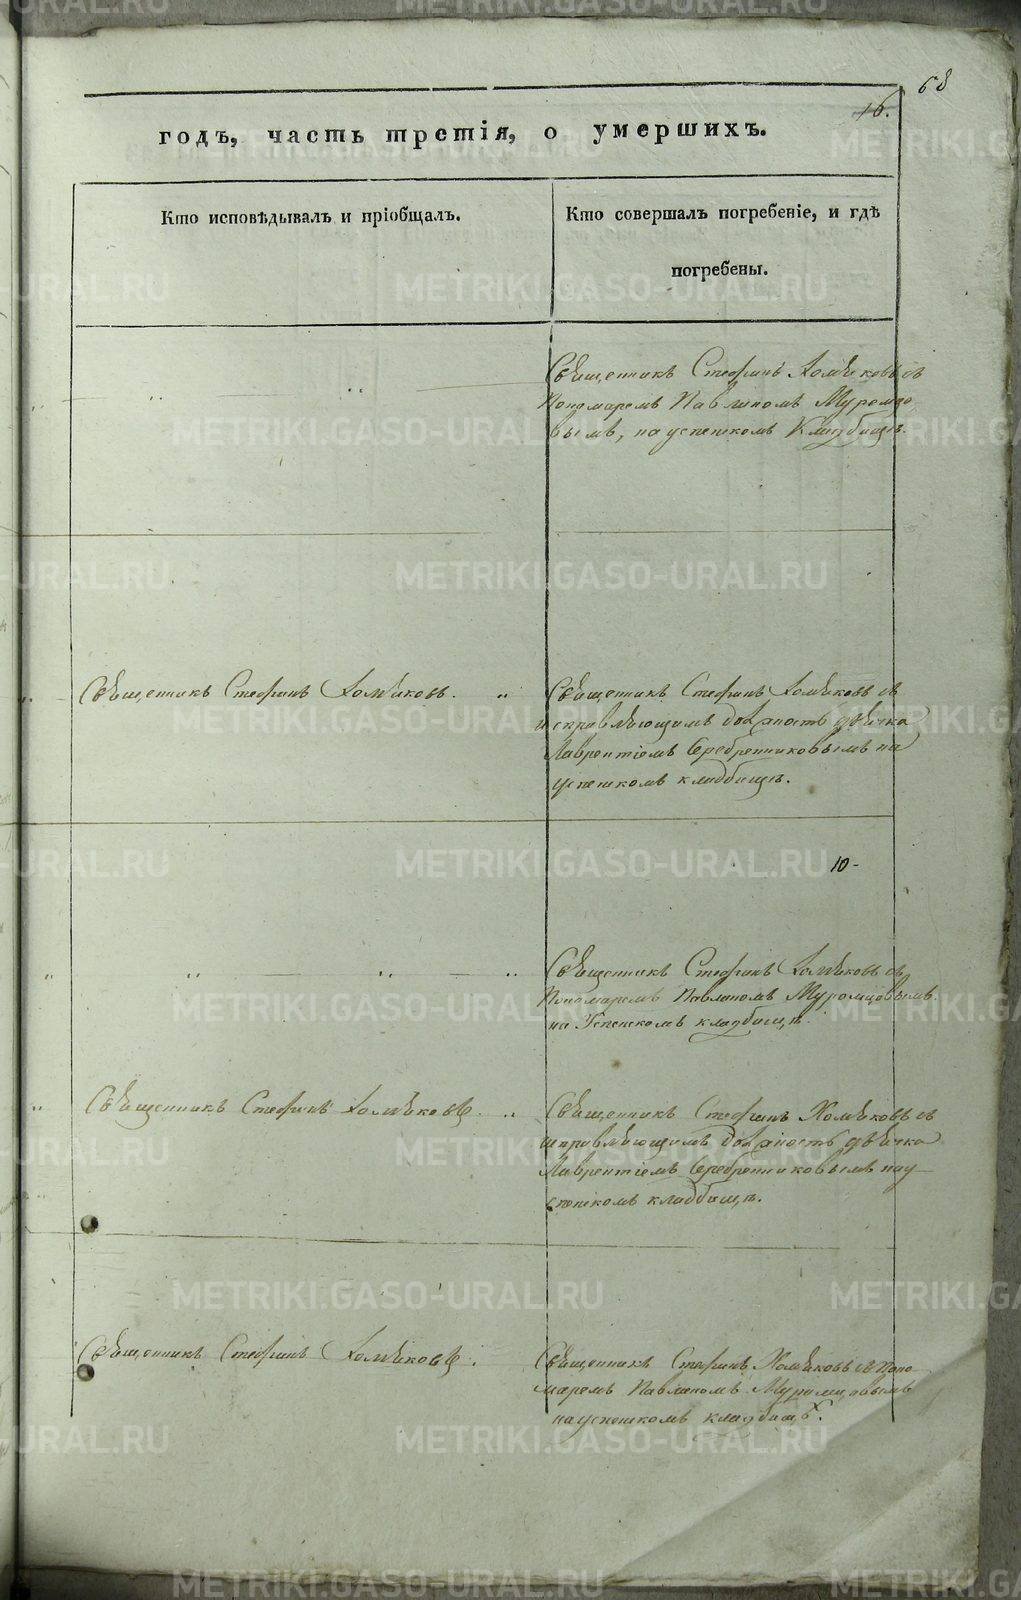 68
16.
годъ, часть третія, о умершихъ.
Кто исповѣдывалъ и пріобщалъ.
Кто совершалъ погребеніе, и гдѣ
погребены.
Священникъ Стефанъ Хомяковъ съ
Пономаремъ Павлиномъ Муромцо-
вымъ, на успенском Кладбищѣ.
Священникъ Стефанъ Хомяковъ.
Священникъ Стефанъ Хомяковъ съ
исправляющимъ должность дьячка
Лаврентіемъ Серебренниковымъ на
успенскомъ кладбищѣ.
10-
Священникъ Стефанъ Хомяковъ съ
Пономаремъ Павлиномъ Муромцовымъ
на Успенскомъ кладбищѣ.
Священникъ Стефанъ Хомяковъ.
Священникъ Стефанъ Хомяковъ съ
исправляющимъ должность дьячка
Лаврентіемъ Серебренниковымъ на у
спенскомъ кладбищѣ.
Священникъ Стефанъ Хомяковъ.
Священникъ Стефанъ Хомяковъ съ поно
маремъ Павлиномъ Муромцовымъ
на успенскомъ кладбищѣ.
METRIKI.GASO-URAL.RU